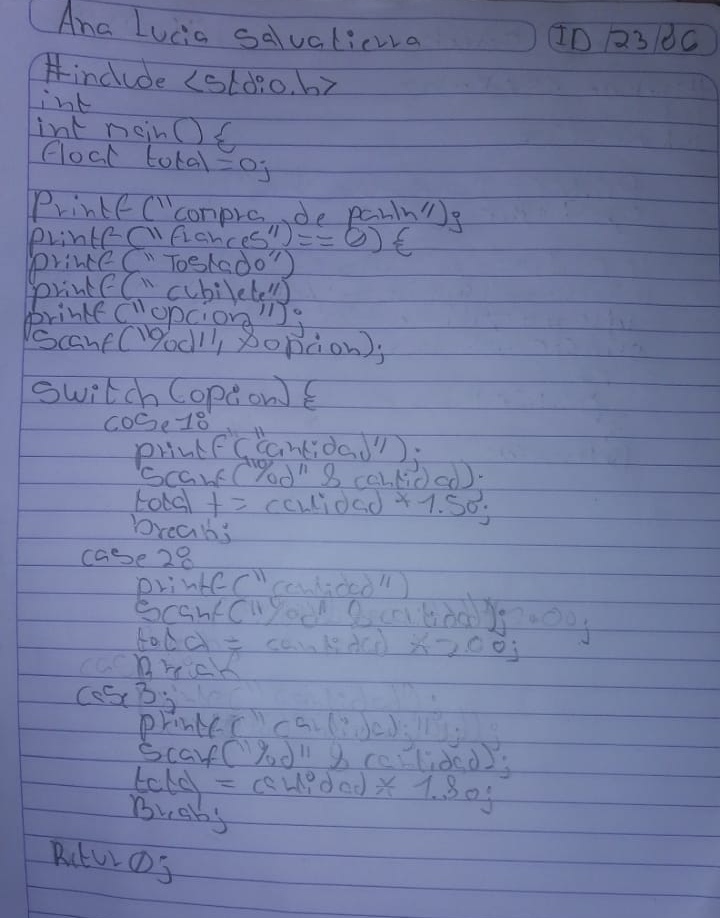 Ana Lucia Salvatierra ID 123186
#include <stdio.h>
int
int main() {
float total=0;
Printf ("compra de pan\n");
printf ("frances")==0) {
printf ("Tostado")
printf ("cubilete")
printf ("opcion");
Scanf("%d", &opcion);
Switch (opcion) {
case 1:
printf ("cantidad");
Scanf ("%d" & cantidad);
total += cantidad * 1.50;
break;
case 2:
printf ("cantidad")
Scanf ("%d" & cantidad);
total = cantidad * 2.00;
Break
case 3;
printf ("cantidad");
Scanf ("%d" & cantidad);
total = cantidad * 1.80;
Break;
Retur 0;